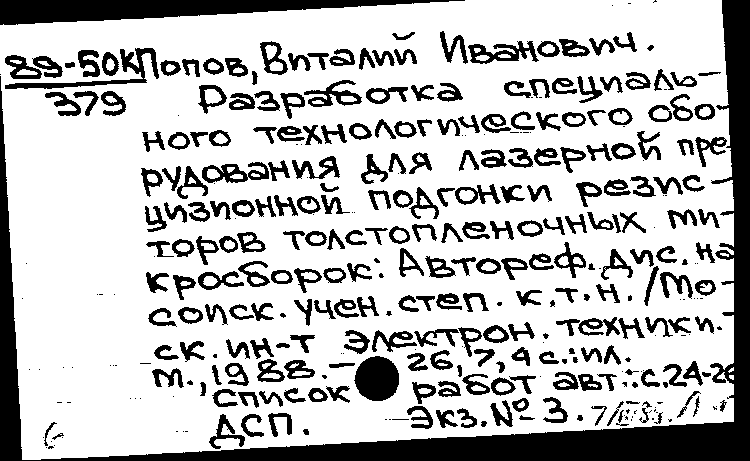 89-50К Попов, Виталий Иванович.
379 Разработка специаль-
ного технологического обо-
рудования для лазерной пре
цизионной подгонки резис-
торов толстопленочных ми-
кросборок: Автореф. дис. на
соиск. учен. степ. к.т.н. / Мо-
ск. ин-т электрон. техники. -
М., 1988. - 26, 7, 4 с.: ил.
Список работ авт.: с. 24-26
ДСП. Экз. № 3.